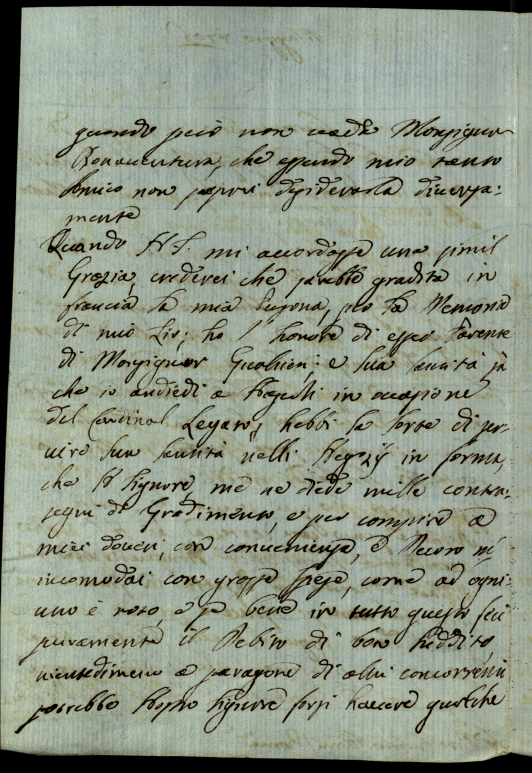 quando però non cada Monsignor
Bonaventura, che essendo mio tanto
Amico non saprei desiderarla diversa-
mente
Quando N. S. mi accordasse una simil
Grazia, crederei che sarebbe gradita in
francia la mia Persona, per la Memoria
di mio Zio; ho l' honore di esser Parente
di Monsignor Gualtieri; e sua santità sà
che io andiedi a Napoli in ocasione
del Cardinal Legato, hebbi la sorte di ser-
vire sua santità nelli Negozÿ in forma,
che il signore, me ne diede mille contra-
segni di Gradimento, e per compire a
miei doveri, con convenienza, e Decoro m'
incomodai con grosse spese, come ad ogni-
uno è noto, e se bene in tutto questo feci
puramente il Debito di bon suddito,
nientedimeno a paragone di altri concorrenti
potrebbe Nostro signore forsi havere qualche